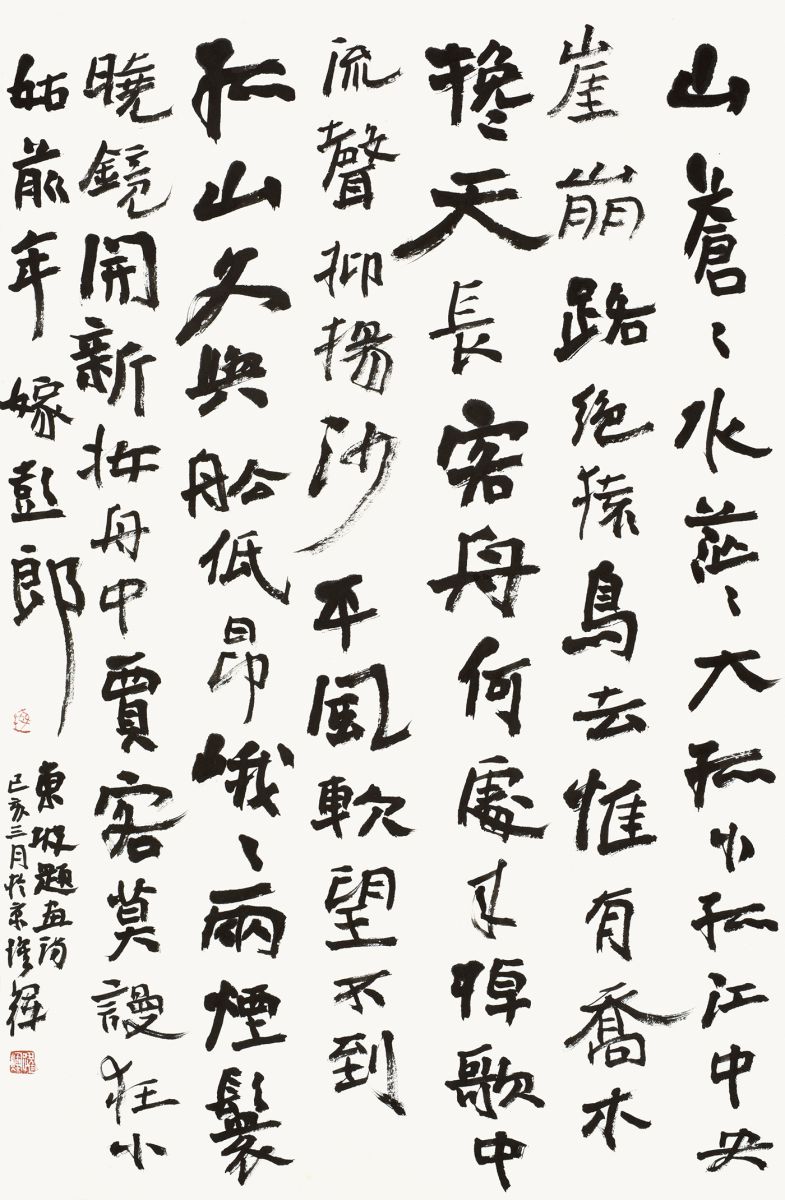 山蒼〻水茫〻大孤小孤江中央
崖崩路絶猿鳥去惟有喬木
攙天長客舟何處来棹歌中
流聲抑揚沙平風軟望不到
孤山久與舩低昂峨〻兩煙鬟
曉鏡開新妝舟中賈客莫謾狂小
姑前年嫁彭郎
東坡題画詩
己亥三月於京